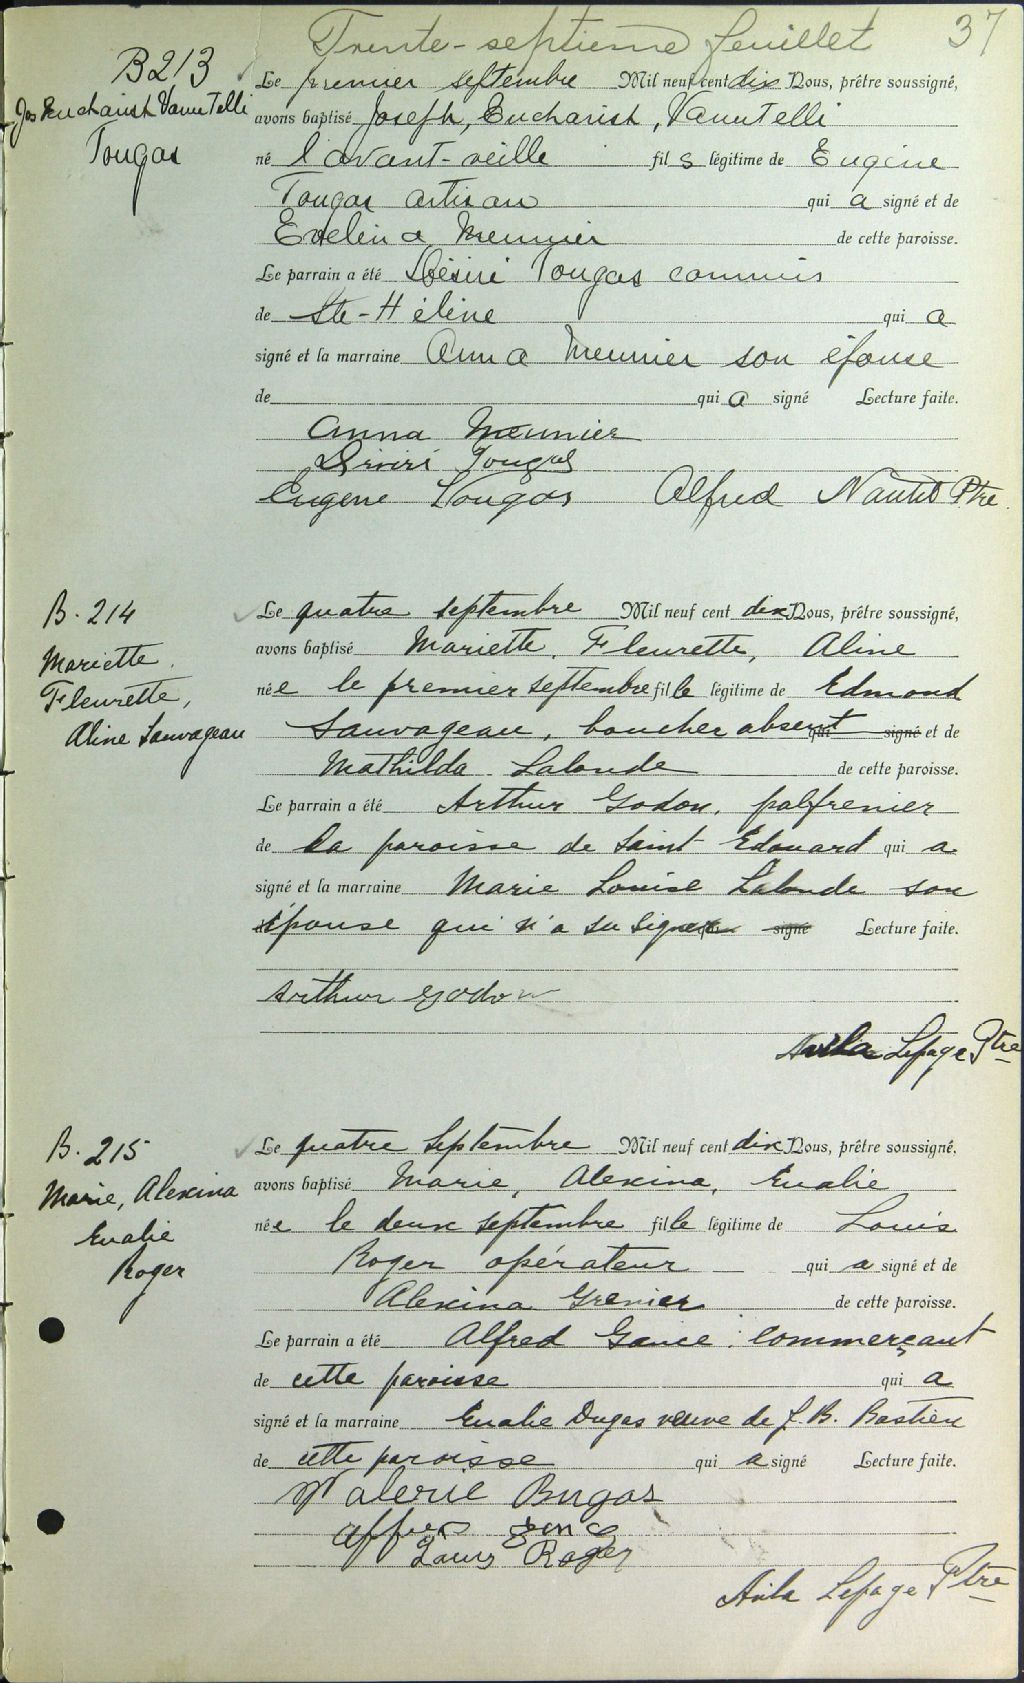 Trente-septième feuillet 37
B213
Jos Eucharist Vanutelli
Tougas
Le premier septembre Mil neuf cent dix Nous, prêtre soussigné,
avons baptisé Joseph, Eucharist, Vanutelli
né l'avant-veille fils légitime de Eugène
Tougas artisan qui a signé et de
Evelina Meunier de cette paroisse.
Le parrain a été Désiré Tougas commis
de Ste-Hélène qui a
signé et la marraine Anna Meunier son épouse
de qui a signé Lecture faite.
Anna Meunier
Désiré Tougas
Eugène Tougas Alfred Ptre.
B. 214
Mariette,
Fleurette,
Aline Sauvageau
Le quatre septembre Mil neuf cent dix Nous, prêtre soussigné,
avons baptisé Mariette, Fleurette, Aline
née le premier septembre fille légitime de Edmond
Sauvageau, boucher absent qui signé et de
Mathilda Lalonde de cette paroisse.
Le parrain a été Arthur Godon, palfrenier
de la paroisse de Saint Edouard qui a
signé et la marraine Marie Louise Lalonde son
épouse qui n'a su signer signé Lecture faite.
Arthur Godon
Avila Lepage Ptre
B. 215
Marie, Alexina
Eualie
Roger
Le quatre Septembre Mil neuf cent dix Nous, prêtre soussigné,
avons baptisé Marie, Alexina, Eualie
née le deux septembre fille légitime de Louis
Roger opérateur qui a signé et de
Alexina Grenier de cette paroisse.
Le parrain a été Alfred commerçant
de cette paroisse qui a
signé et la marraine Eualie Dugas veuve de J. B. Bastien
de cette paroisse qui a signé Lecture faite.
Louis Roger
Avila Lepage Ptre